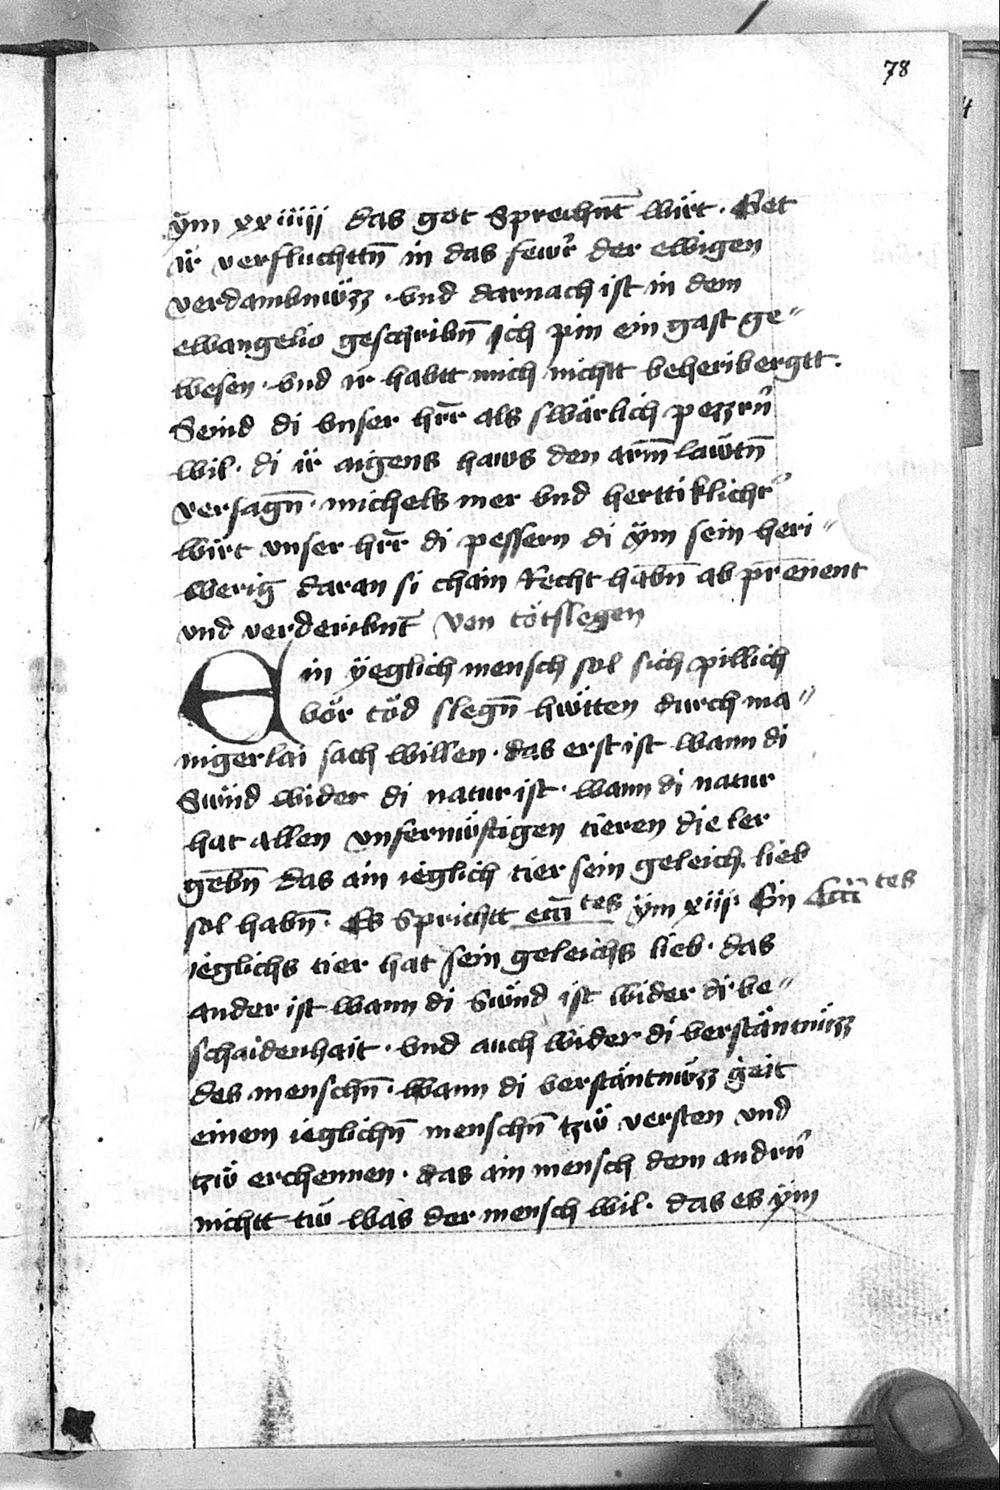 78
ÿm xxiiiij das got Sprechn̄t wirt. Get
ir verfluchttn̄ in das fewr̄ der ewigen
verdambnüzz. vnd darnach ist in dem
ewangelio geschribn̄ ich pin ein gast ge⸗
wesen. vnd ir habtt mich nichtt beheribergtt.
Seind di vnser hrr̄ als swärlich pezzrn̄
wil. di ir aigens haws den arm̄ läwtn̄
versagn̄. michels mer vnd herttiklichr̄
wirt vnser hrr̄ di pessern di ÿm sein heri⸗
werig daran si chain Recht habn̄ ab prēnent
vnd verderibnt̄ Von tötslegen
Ein ÿeglich mensch sol sich pillich
vör töd slegn̄ hwïten durch ma⸗
nigerlai sach willen. das erst ist wann di
Sünd wider di natur ist. wann di natur
hat allen vnfernüftigen tieren die ler
gebn̄ das ain ieglich tier sein geleich lieb
sol habn̄. Es Sprichtt ÿm xiij. Ein
ieglichs tier hat sein geleichs lieb. das
ander ist wann di Sünd ist wider di be⸗
schaidenhait. vnd auch wider di verstäntnüzz
des menschn̄. wann di verstäntnüzz geit
einem ieglichn̄ menschn̄ tzü versten vnd
tzü erchennen. das ain mensch dem andrn̄
nichtt tü was der mensch wil. das es ÿm